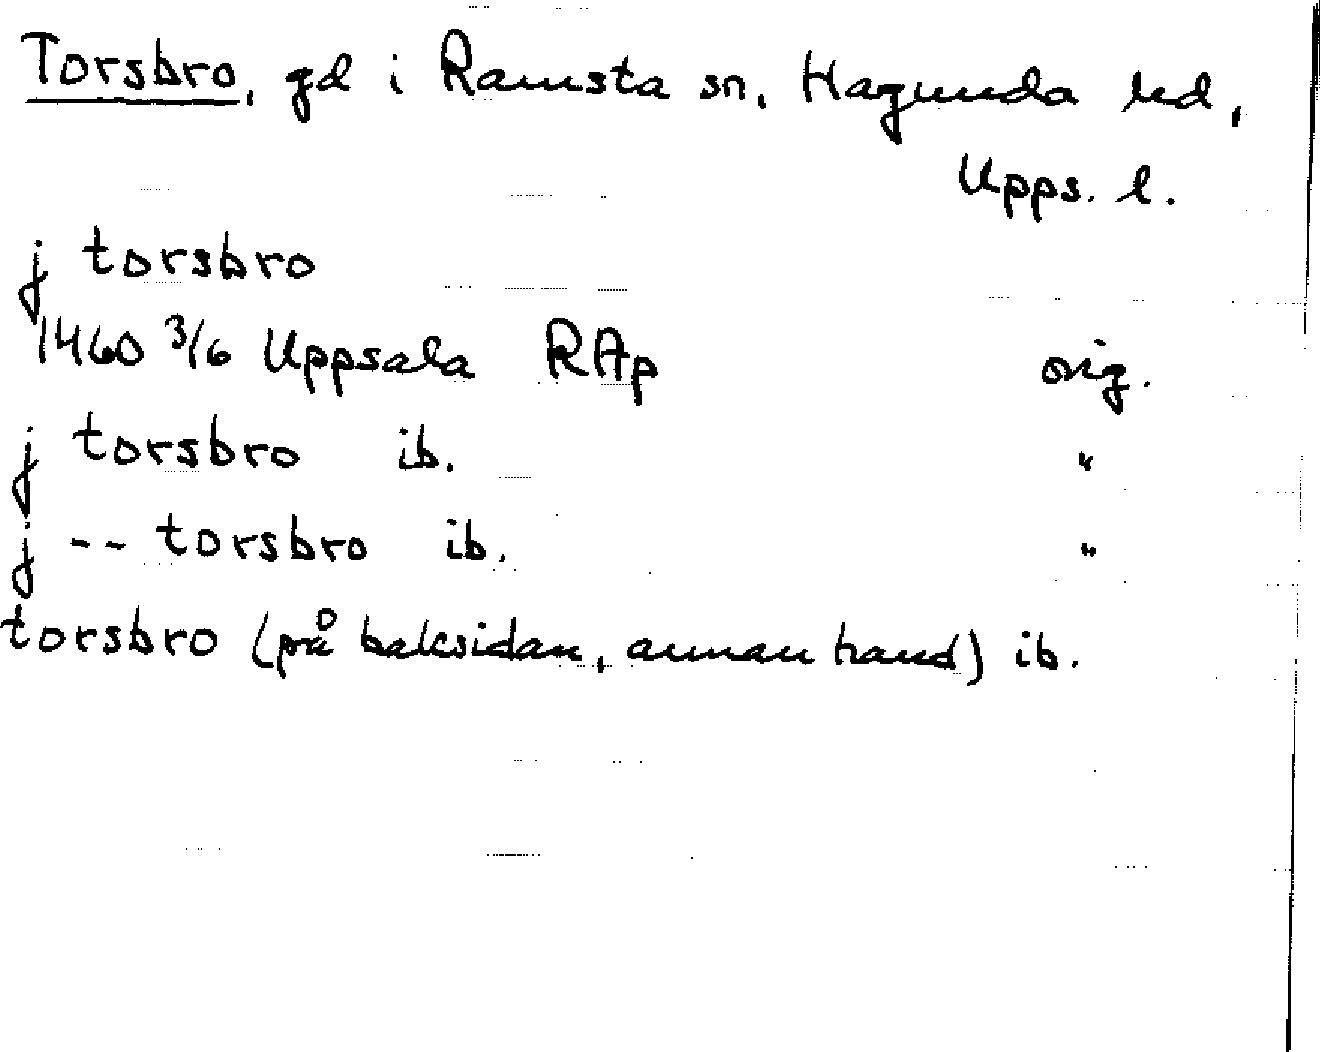 Torsbro, gd i Ramsta sn, Hagunda hd,
Upps. l.
j torsbro
1460 3/6 Uppsala RAp orig.
j torsbro ib. "
j -- torsbro ib. "
torsbro (på baksidan, annan hand) ib.